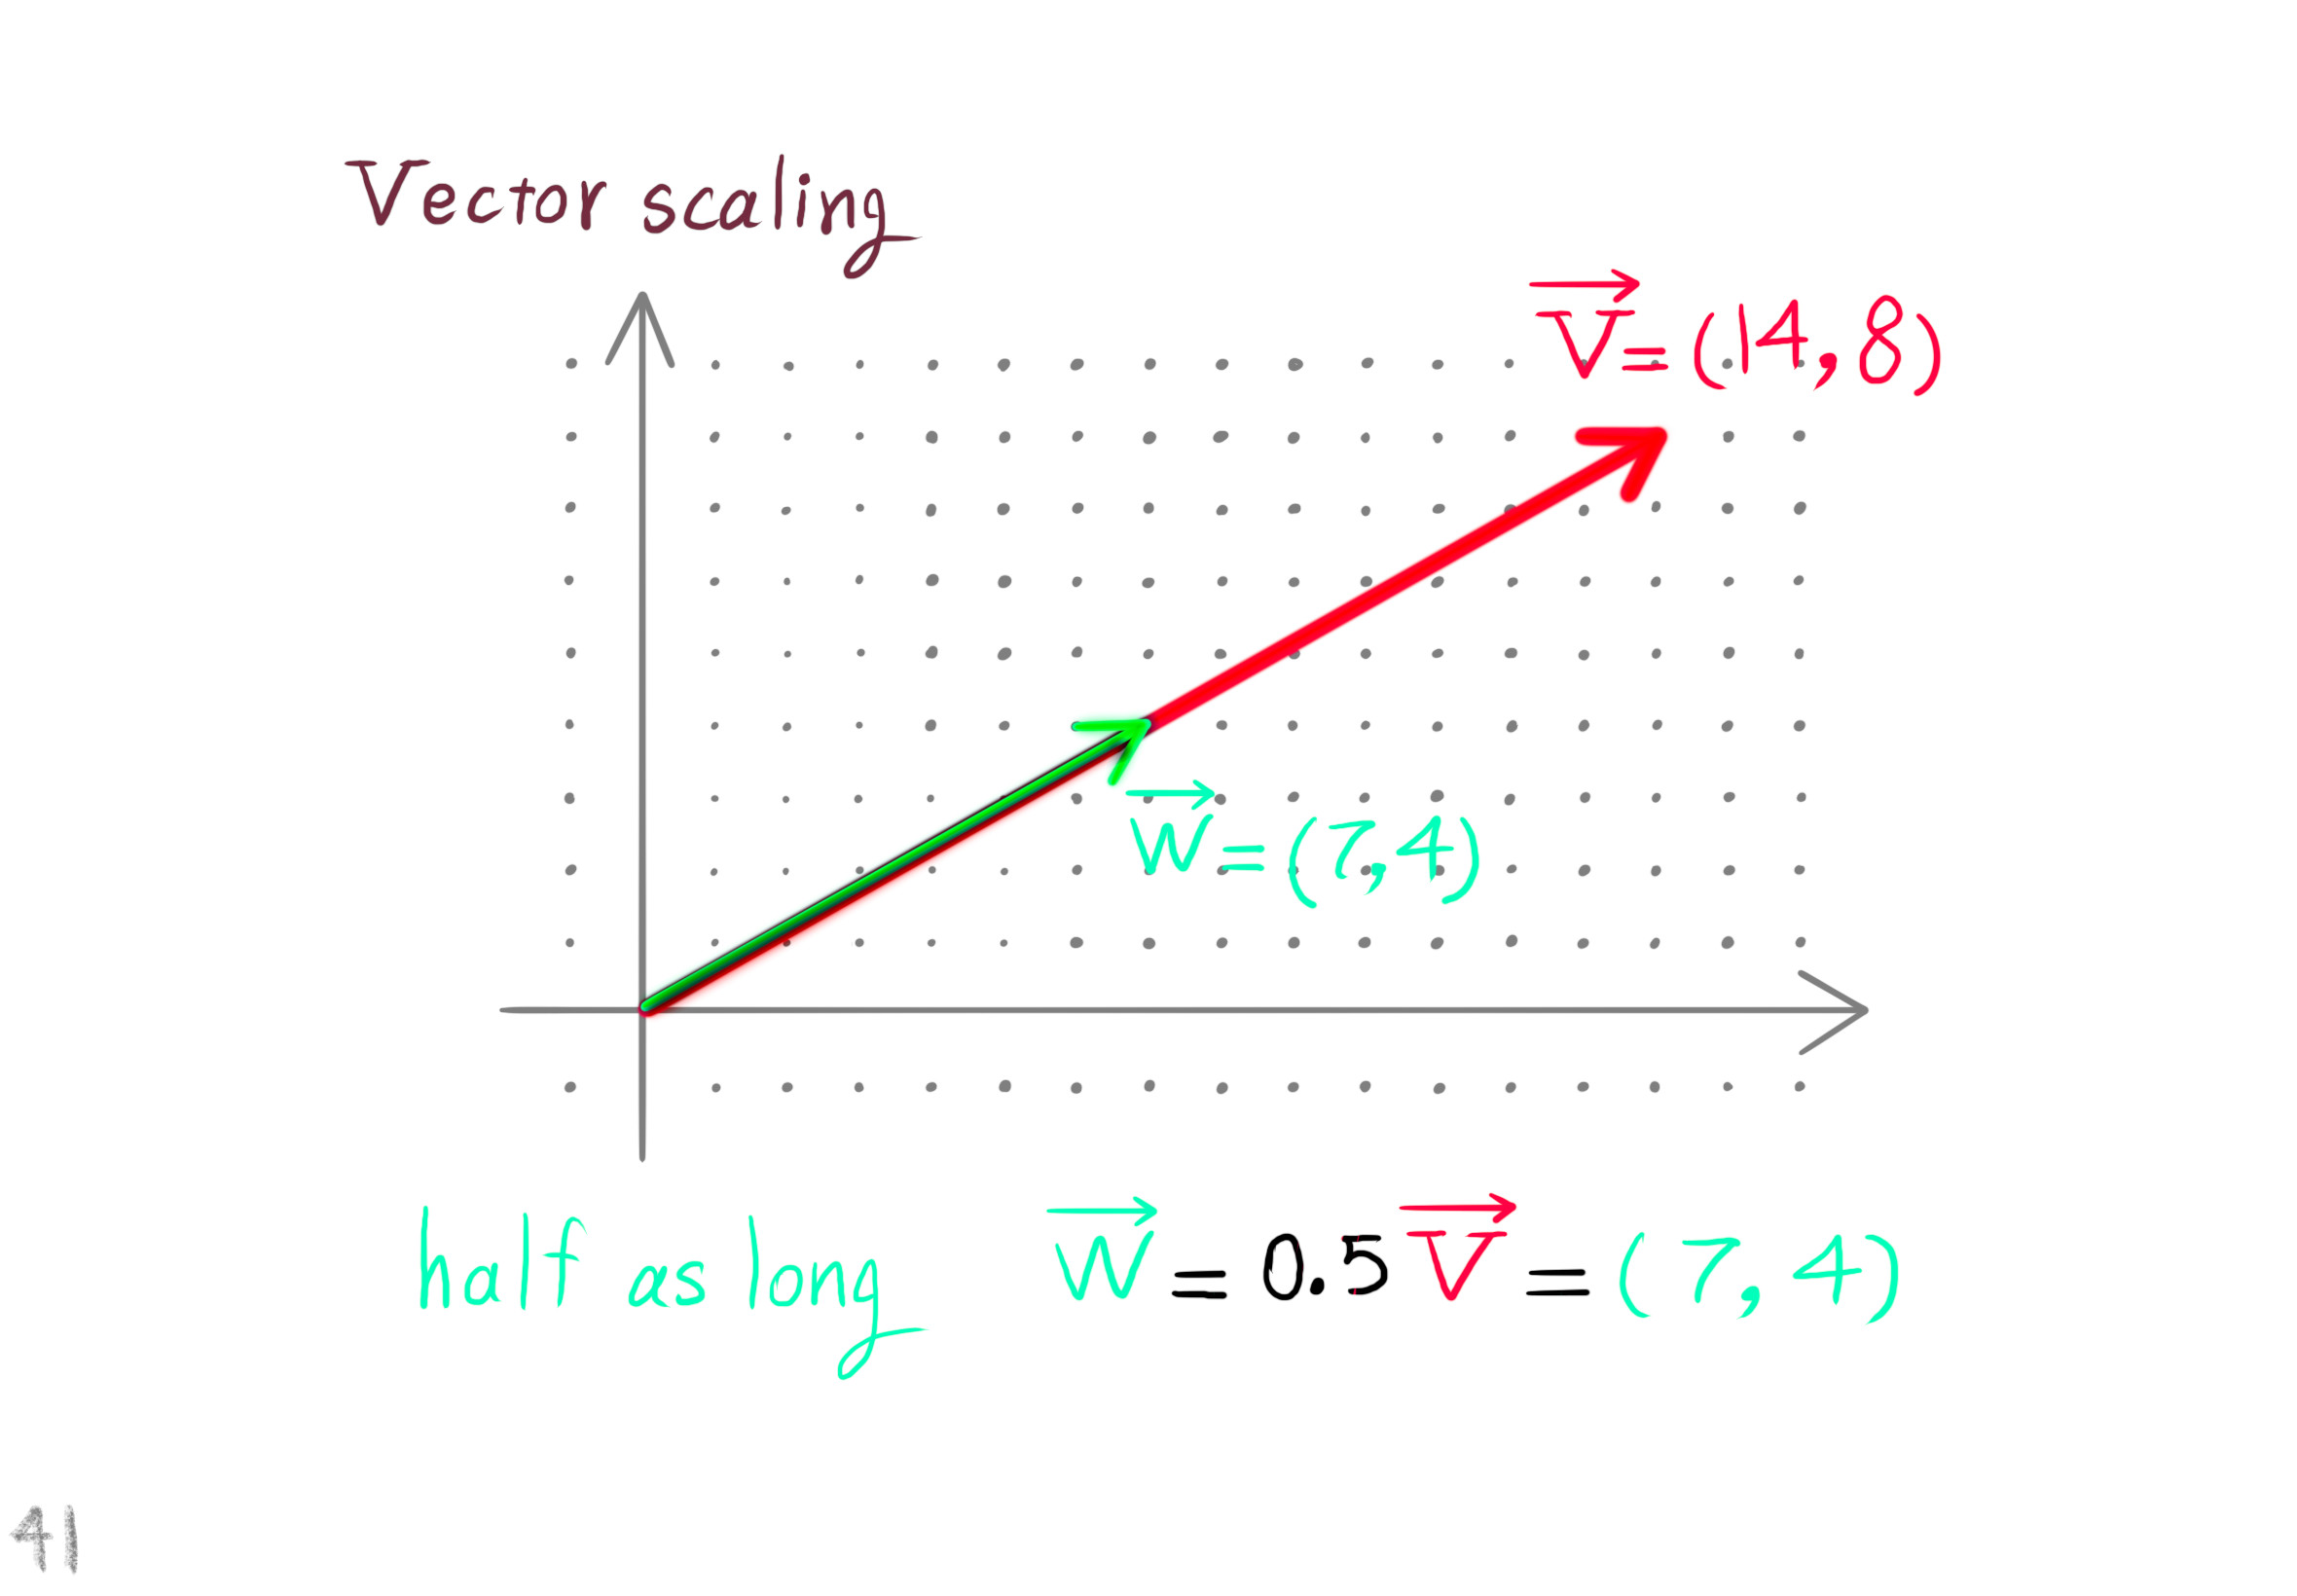 Vector scaling
V⃗ = (14, 8)
w⃗ = (7, 4)
half as long w⃗ = 0.5 V⃗ = (7, 4)
41